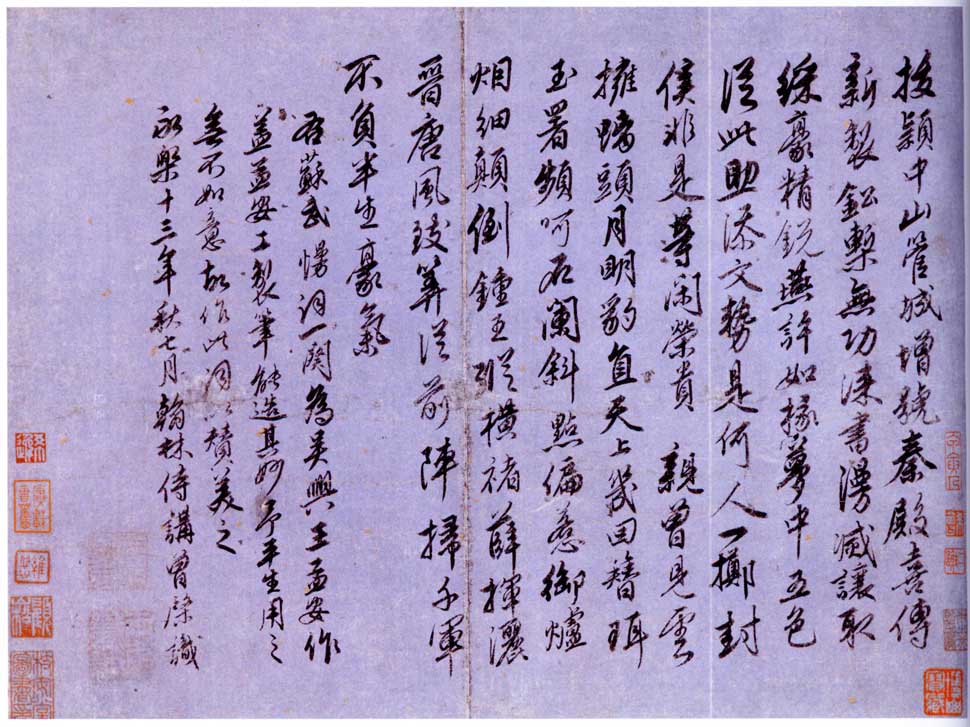 拔穎中山管城增號秦殿喜傳
新製鉛槧無功漆書漫滅讓取
綵豪精銳燕許如椽夢中五色
從此助添文勢是何人一擲封
侯非是等閑榮貴 親曾見雲
擁螭頭月明豹直天上幾回簪珥
玉署頻呵石闌斜點偏惹御爐
烟細顛倒鍾王縱橫褚薛揮灑
晉唐風致算從前陣掃千軍
不負半生豪氣
右蘇武慢詞一闋為吳興王孟安作
蓋孟安工製筆能造其妙予平生用之
無不如意故作此詞以贊美之
永樂十三年秋七月翰林侍講曾棨識